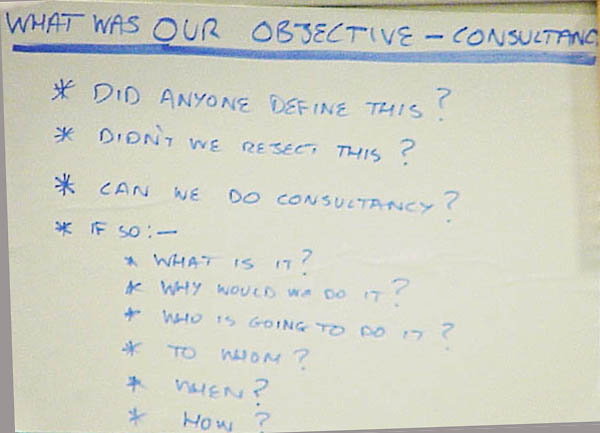 WHAT WAS OUR OBJECTIVE – CONSULTANC
* DID ANYONE DEFINE THIS?
* DIDN'T WE REJECT THIS?
* CAN WE DO CONSULTANCY?
* IF SO:–
* WHAT IS IT?
* WHY WOULD WE DO IT?
* WHO IS GOING TO DO IT?
* TO WHOM?
* WHEN?
* HOW?